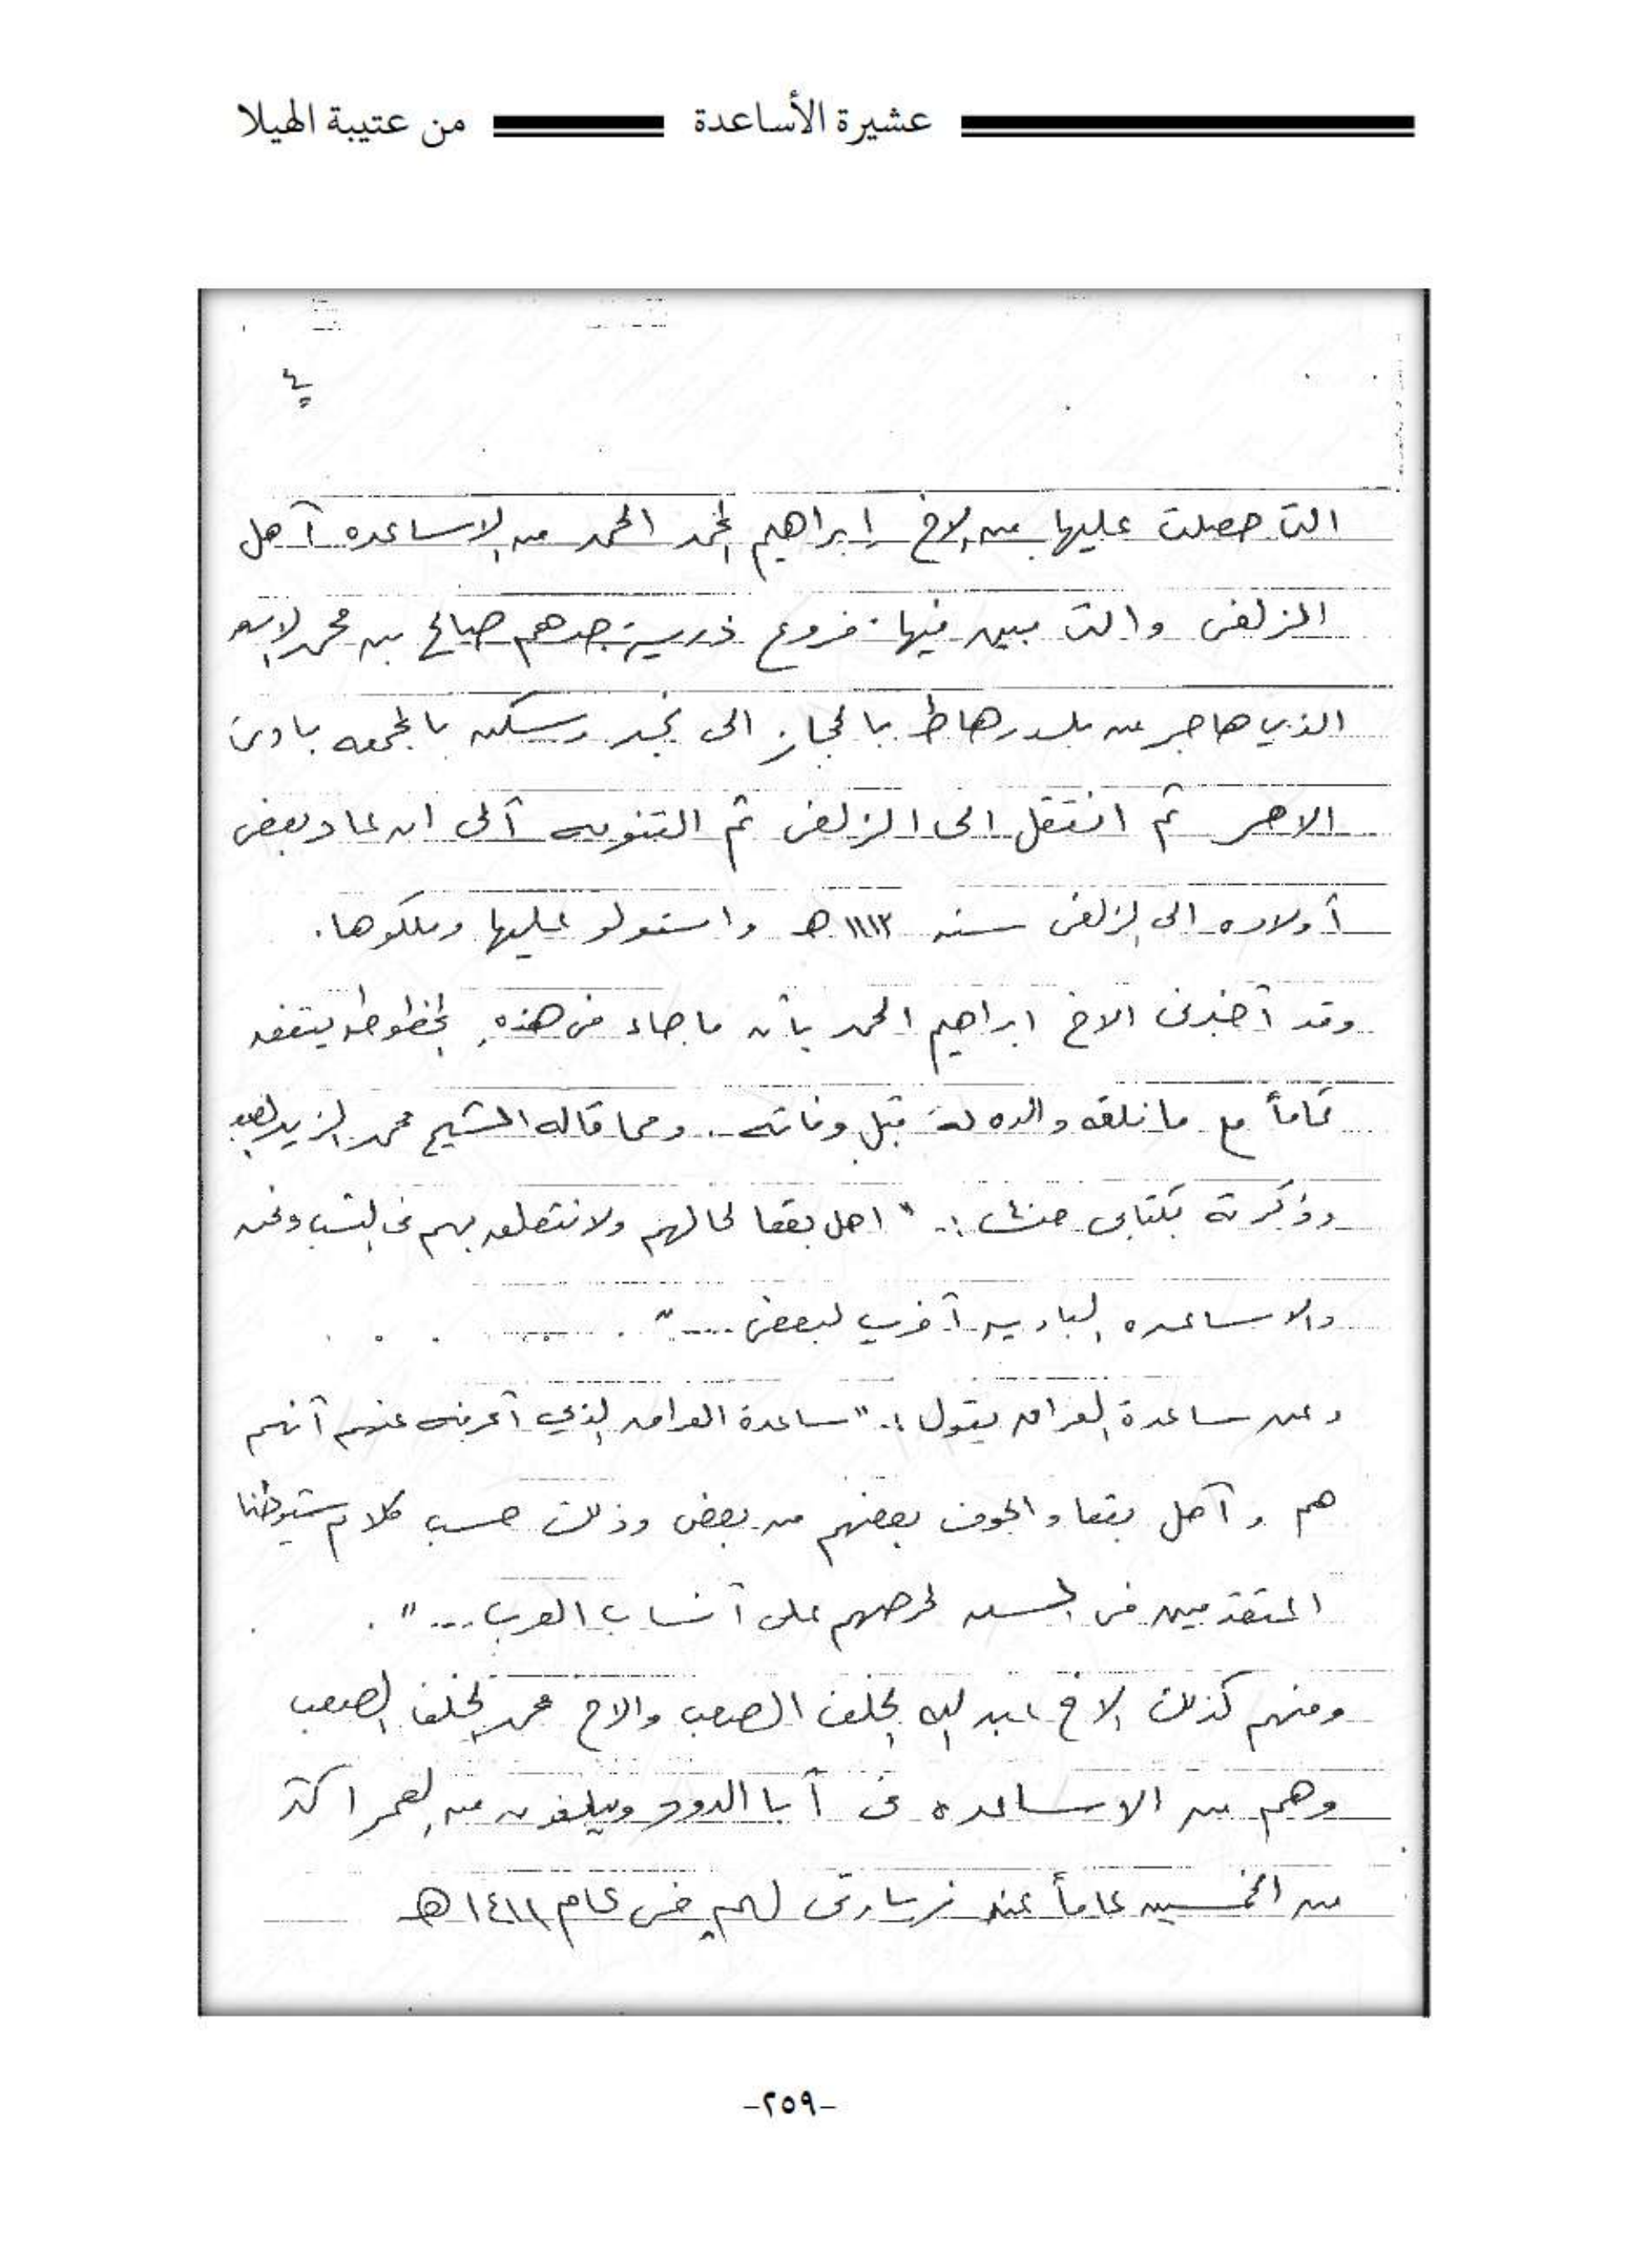 عشيرة الأساعدة من عتيبة الهيلا
٤
التي حصلت عليها من الاخ إبراهيم المحمد الحمد من الاساعده أهل
الزلفى والتى يبين فيها فروع ذرية جدهم صالح بن محمد
الذي هاجر من بلد رهاط بالحجاز الى نجد وسكن بالمجمعه بادئ
الامر ثم انتقل الى الزلفى ثم التنومه ألى ان عاد بعض
أولاده الى الزلفى سنه ١١١٣ هـ واستولو عليها وملكوها.
وقد أخبرنى الاخ ابراهيم الحمد بأن ما جاء فى هذه المخطوطه يتفق
تماماً مع ما نقله والده له قبل وفاته. ومما قاله الشيخ محمد الزيد
وذكرته بكتابى :- " اهل بقعا لحالهم ولا نتعلق بهم فى النسب ونحن
والاساعده الباديه أقرب لبعض ...."
وعن ساعدة العراق يقول :- "ساعدة العراق الذي أعرفه عنهم أنهم
هم وأهل بقعا والجوف بعضهم من بعض وذلك حسب كلام شيوخنا
المتقدمين فى السن لحرصهم على أنساب العرب...".
ومنهم كذلك الاخ عبد الله الخلف الصعب والاخ محمد الخلف الصعب
وهم من الاساعده فى أبا الدود ويبلغون من العمر اكثر
من الخمسين عاماً عند زيارتى لهم فى عام ١٤١١هـ
-٢٥٩-